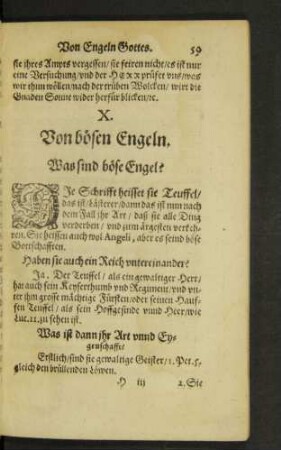 Von Engeln Gottes. 59
sie jhres Ampts vergessen/ sie feiren nicht/ es ist nur
eine Versuchung/ vnd der HERR prüfet vns/ was
wir thun wöllen/ nach der trüben Wolcken/ wirt die
Gnaden Sonne wider herfür blicken/ ꝛc.
X.
Von bösen Engeln.
Was sind böse Engel?
DIe Schrifft heisset sie Teuffel/
das ist/ Lästerer/ dann das ist nun nach
dem Fall jhr Art/ daß sie alle Ding
verderben/ vnd zum ärgesten verkeh-
ren. Sie heissen auch wol Angeli, aber es seind böse
Bottschafften.
Haben sie auch ein Reich vntereinander?
Ja. Der Teuffel/ als ein gewaltiger Herr/
hat auch sein Keyserthumb vnd Regiment/ vnd vn-
ter jhm grosse mächtige Fürsten/ oder seinen Hauf-
fen Teuffel/ als sein Hoffgesinde vnnd Heer/ wie
Luc. 11. zu sehen ist.
Was ist dann jhr Art vnnd Ey-
genschafft?
Erstlich/ sind sie gewaltige Geister/ 1. Pet. 5.
gleich den brüllenden Löwen.
H iij 2. Sie